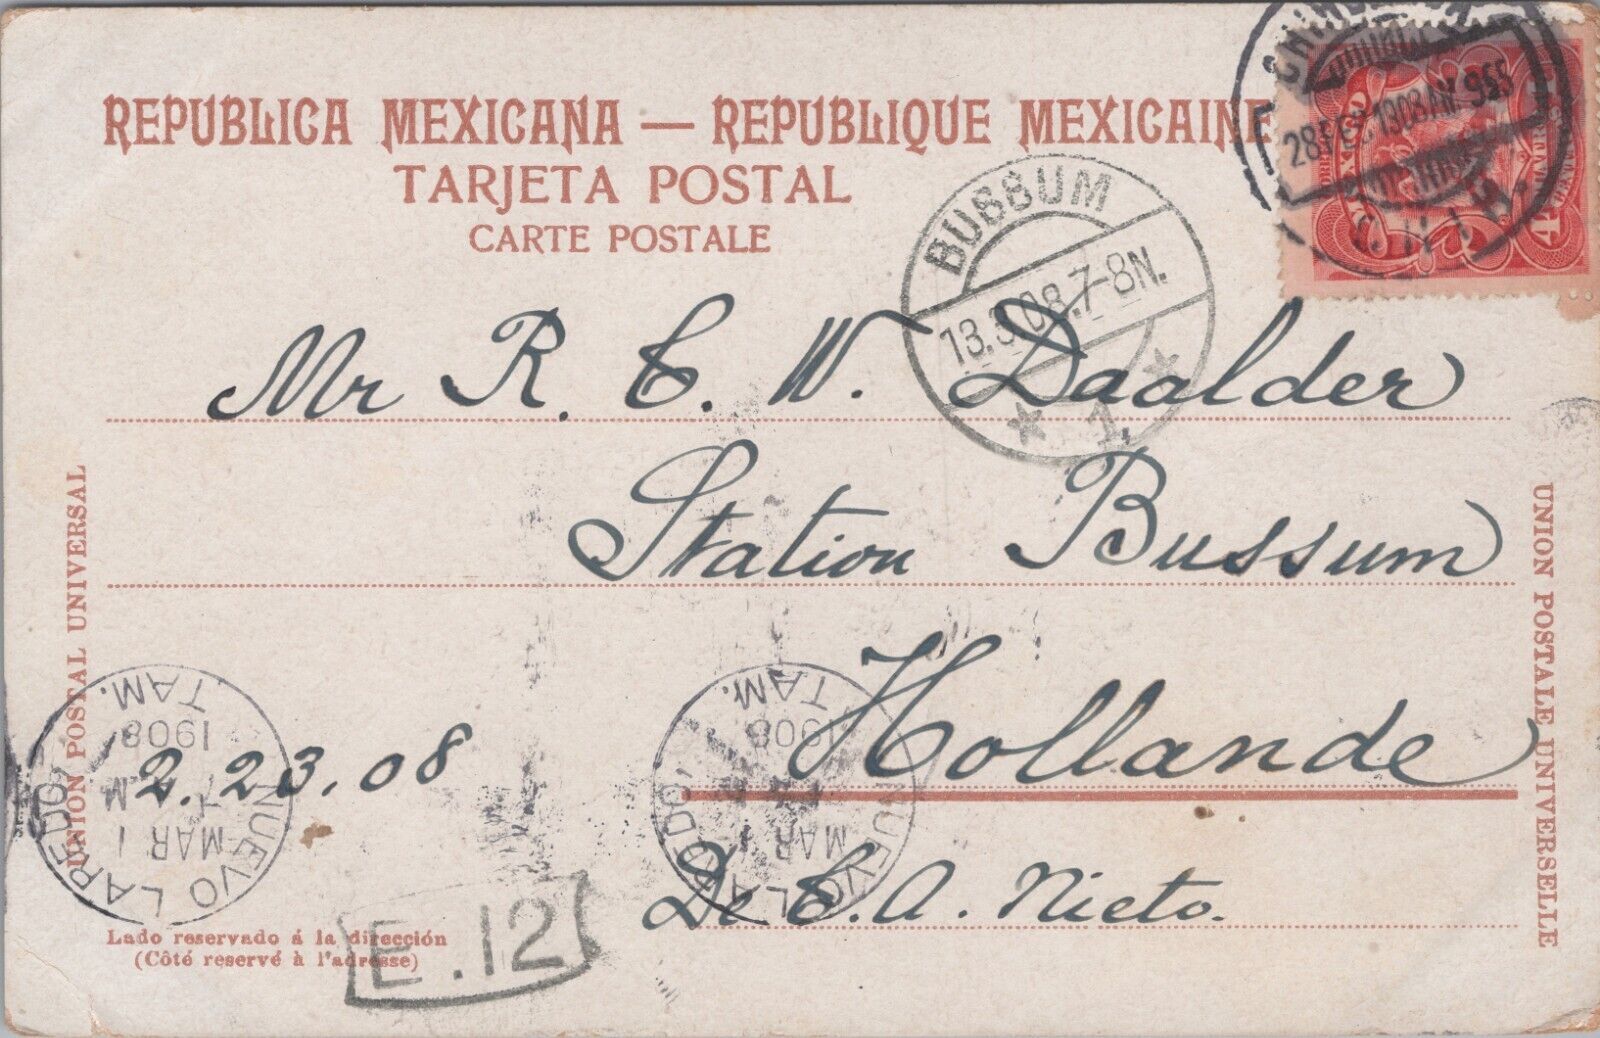 REPUBLICA MEXICANA — REPUBLIQUE MEXICAINE
TARJETA POSTAL
CARTE POSTALE
28 FEB 1908 AM 9 55
BUSSUM
13.3.08.7-8N.
1
Mr R. C. W. Daalder
Station Bussum
Hollande
2.23.08
De C. A. Nieto.
UNION POSTAL UNIVERSAL
UNION POSTALE UNIVERSELLE
NUEVO LAREDO,
MAR 1
M
1908
TAM.
NUEVO LAREDO,
MAR 1
1908
TAM.
E.12
Lado reservado á la dirección
(Côté reservé à l'adresse)